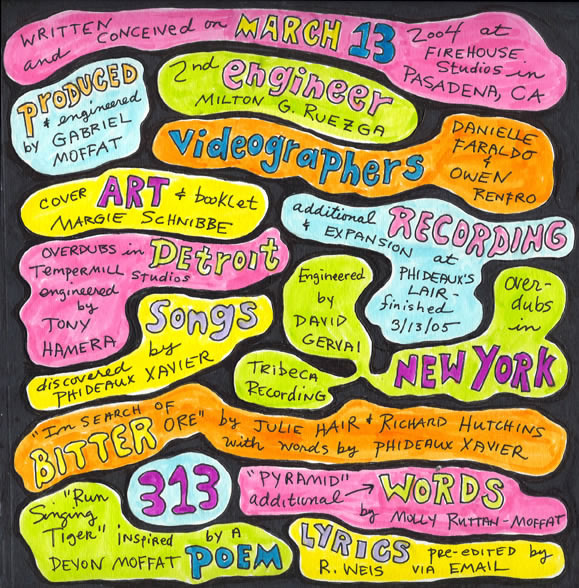 WRITTEN and CONCEIVED on MARCH 13
2004 at
FIREHOUSE
Studios in
PASADENA, CA
PRODUCED
& engineered
by GABRIEL
MOFFAT
2nd engineer
MILTON G. RUEZGA
Videographers
DANIELLE
FARALDO
&
OWEN
RENFRO
COVER ART & booklet
MARGIE SCHNIBBE
additional RECORDING
& EXPANSION at
PHIDEAUX'S
LAIR -
finished
3/13/05
OVERDUBS in Detroit
TEMPERMILL Studios
engineered
by
TONY
HAMERA
Engineered
by
DAVID
GERVAI
Tribeca
Recording
over-
dubs
in
NEW YORK
Songs
discovered by
PHIDEAUX XAVIER
"In SEARCH OF
BITTER ORE" by JULIE HAIR & RICHARD HUTCHINS
with words by PHIDEAUX XAVIER
313
"PYRAMID"
additional → WORDS
by MOLLY RUTTAN-MOFFAT
"Run
Singing
Tiger" inspired by A
DEVON MOFFAT POEM
LYRICS pre-edited by
R. WEIS VIA EMAIL